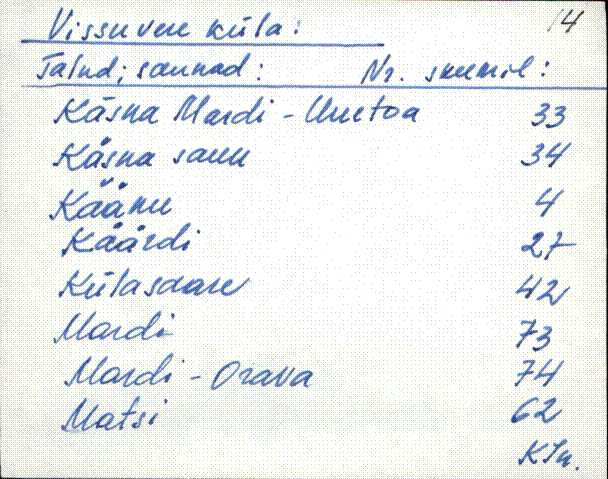 14
Vissuvere küla:
Talud; saunad: Nr. skeemil:
Käsna Mardi - Uuetoa 33
Käsna saun 34
Käänu 4
Käärdi 27
Külasaare 42
Mardi 73
Mardi - Orava 74
Matsi 62